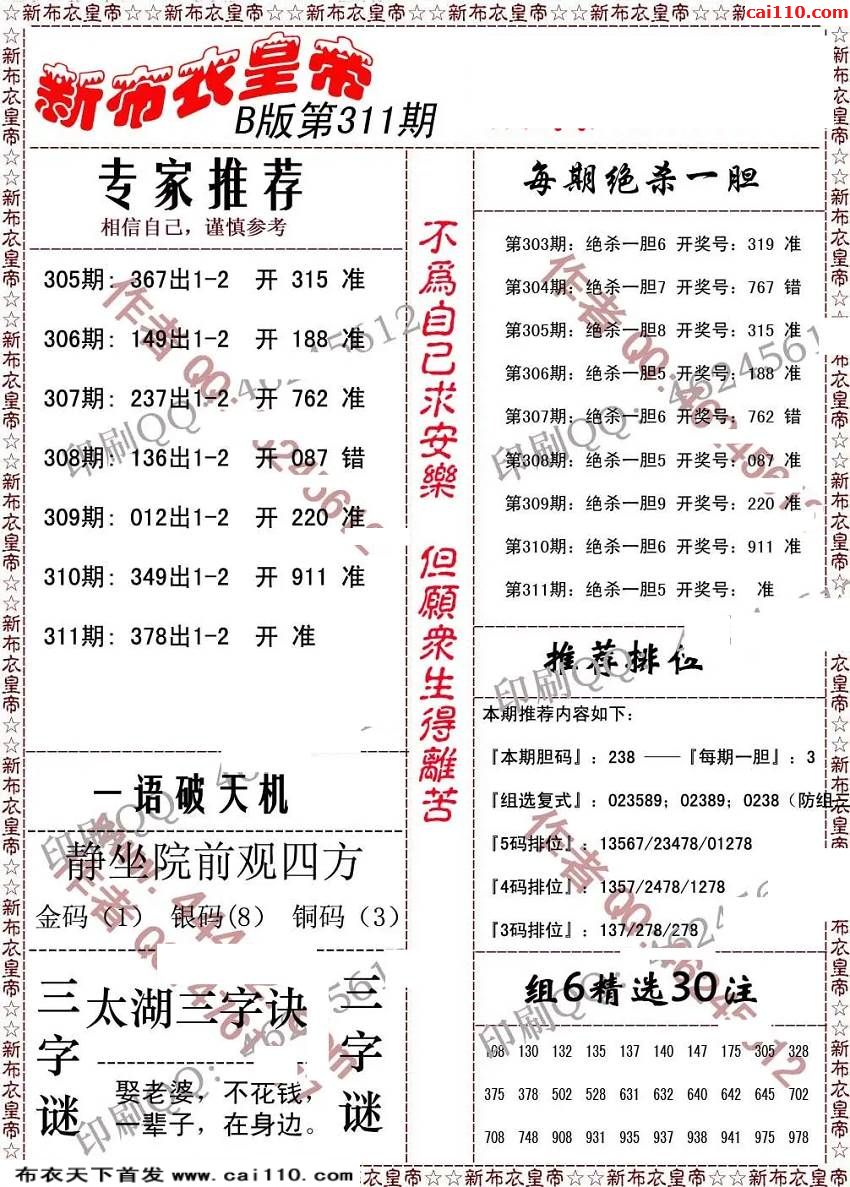 cai110.com
新布衣皇帝
B版第311期
专家推荐
相信自己，谨慎参考
305期: 367出1-2 开 315 准
306期: 149出1-2 开 188 准
307期: 237出1-2 开 762 准
308期: 136出1-2 开 087 错
309期: 012出1-2 开 220 准
310期: 349出1-2 开 911 准
311期: 378出1-2 开 准
一语破天机
静坐院前观四方
金码（1） 银码(8） 铜码（3）
三字谜
太湖三字诀
娶老婆，不花钱，
一辈子，在身边。
三字谜
不爲自己求安樂 但願衆生得離苦
每期绝杀一胆
第303期: 绝杀一胆6 开奖号: 319 准
第304期: 绝杀一胆7 开奖号: 767 错
第305期: 绝杀一胆8 开奖号: 315 准
第306期: 绝杀一胆5 开奖号: 188 准
第307期: 绝杀一胆6 开奖号: 762 错
第308期: 绝杀一胆5 开奖号: 087 准
第309期: 绝杀一胆9 开奖号: 220 准
第310期: 绝杀一胆6 开奖号: 911 准
第311期: 绝杀一胆5 开奖号: 准
推荐排位
本期推荐内容如下:
『本期胆码』: 238 ——『每期一胆』: 3
『组选复式』: 023589; 02389; 0238（防组三
『5码排位』: 13567/23478/01278
『4码排位』: 1357/2478/1278
『3码排位』: 137/278/278
组6精选30注
108 130 132 135 137 140 147 175 305 328
375 378 502 528 631 632 640 642 645 702
708 748 908 931 935 937 938 941 975 978
布衣天下首发 www.cai110.com